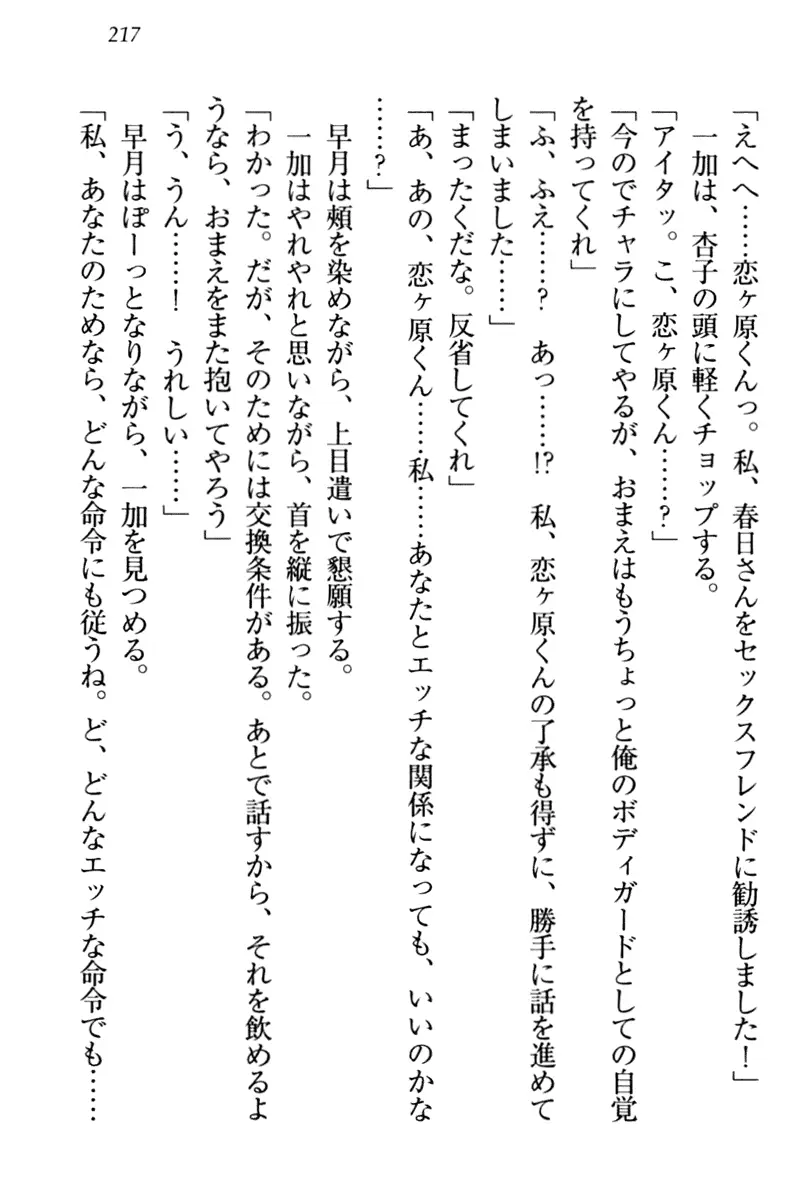 217
「えへへ……恋ヶ原くんっ。私、春日さんをセックスフレンドに勧誘しました！」
一加は、杏子の頭に軽くチョップする。
「アイタッ。こ、恋ヶ原くん……？」
「今のでチャラにしてやるが、おまえはもうちょっと俺のボディガードとしての自覚
を持ってくれ」
「ふ、ふえ……？　あっ……!?　私、恋ヶ原くんの了承も得ずに、勝手に話を進めて
しまいました……」
「まったくだな。反省してくれ」
「あ、あの、恋ヶ原くん……私……あなたとエッチな関係になっても、いいのかな
……？」
早月は頰を染めながら、上目遣いで懇願する。
一加はやれやれと思いながら、首を縦に振った。
「わかった。だが、そのためには交換条件がある。あとで話すから、それを飲めるよ
うなら、おまえをまた抱いてやろう」
「う、うん……！　うれしい……」
早月はぽーっとなりながら、一加を見つめる。
「私、あなたのためなら、どんな命令にも従うね。ど、どんなエッチな命令でも……